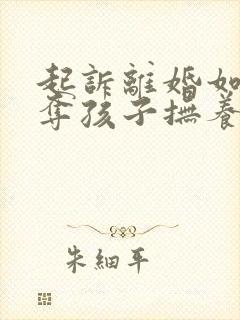 起訴離婚如
奪孩子撫養
朱細平